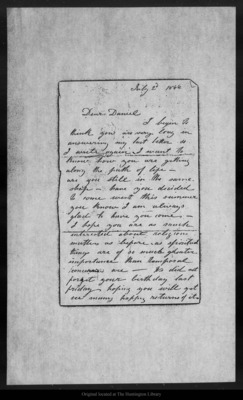 July 2d 1866
Dear Daniel
I begin to
think you are very long in
answering my last letter so
I write again I want to
know how you are getting
along the path of life –
are you still in the same
ship – have you decided
to come west this summer
you know I am always
glad to have you come, –
I hope you are as much
interested about religious
matters as before as spiritual
things are of so much greater
importance than temporal
are – We did not
forget your birthday last
friday – hoping you will yet
see many happy returns of it.
Original located at The Huntington Library